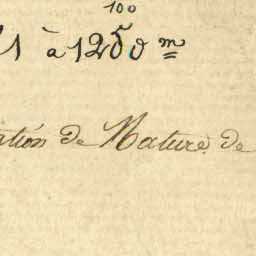 100
1 à 1250 m
ation de Nature de